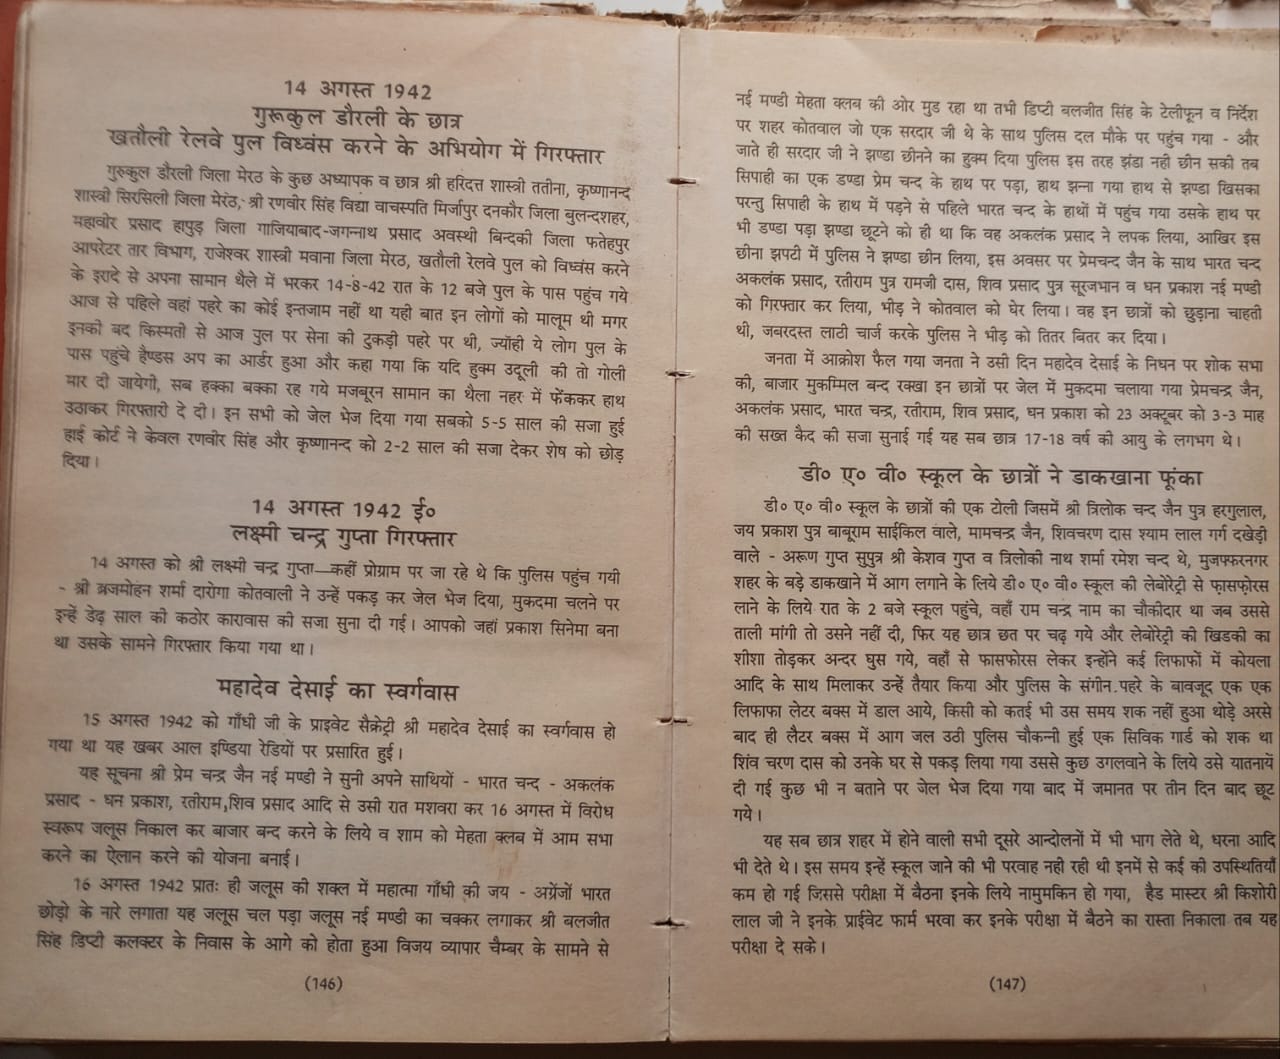 14 अगस्त 1942
गुरूकुल डौरली के छात्र
खतौली रेलवे पुल विध्वंस करने के अभियोग में गिरफ्तार
गुरुकुल डौरली जिला मेरठ के कुछ अध्यापक व छात्र श्री हरिदत्त शास्त्री ततीना, कृष्णानन्द
शास्त्री सिरसिली जिला मेरठ, श्री रणवीर सिंह विद्या वाचस्पति मिर्जापुर दनकौर जिला बुलन्दशहर,
महावीर प्रसाद हापुड़ जिला गाजियाबाद-जगन्नाथ प्रसाद अवस्थी बिन्दकी जिला फतेहपुर
आपरेटर तार विभाग, राजेश्वर शास्त्री मवाना जिला मेरठ, खतौली रेलवे पुल को विध्वंस करने
के इरादे से अपना सामान थैले में भरकर 14-8-42 रात के 12 बजे पुल के पास पहुंच गये
आज से पहिले वहां पहरे का कोई इन्तजाम नहीं था यही बात इन लोगों को मालूम थी मगर
इनकी बद किस्मती से आज पुल पर सेना की टुकड़ी पहरे पर थी, ज्योंही ये लोग पुल के
पास पहुंचे हैण्डस अप का आर्डर हुआ और कहा गया कि यदि हुक्म उदूली की तो गोली
मार दी जायेगी, सब हक्का बक्का रह गये मजबूरन सामान का थैला नहर में फेंककर हाथ
उठाकर गिरफ्तारी दे दी। इन सभी को जेल भेज दिया गया सबको 5-5 साल की सजा हुई
हाई कोर्ट ने केवल रणवीर सिंह और कृष्णानन्द को 2-2 साल की सजा देकर शेष को छोड़
दिया।
14 अगस्त 1942 ई०
लक्ष्मी चन्द्र गुप्ता गिरफ्तार
14 अगस्त को श्री लक्ष्मी चन्द्र गुप्ता—कहीं प्रोग्राम पर जा रहे थे कि पुलिस पहुंच गयी
- श्री ब्रजमोहन शर्मा दारोगा कोतवाली ने उन्हें पकड़ कर जेल भेज दिया, मुकदमा चलने पर
इन्हें डेढ़ साल की कठोर कारावास की सजा सुना दी गई। आपको जहां प्रकाश सिनेमा बना
था उसके सामने गिरफ्तार किया गया था।
महादेव देसाई का स्वर्गवास
15 अगस्त 1942 को गाँधी जी के प्राइवेट सैक्रेट्री श्री महादेव देसाई का स्वर्गवास हो
गया था यह खबर आल इण्डिया रेडियों पर प्रसारित हुई।
यह सूचना श्री प्रेम चन्द्र जैन नई मण्डी ने सुनी अपने साथियों - भारत चन्द - अकलंक
प्रसाद - धन प्रकाश, रतीराम,शिव प्रसाद आदि से उसी रात मशवरा कर 16 अगस्त में विरोध
स्वरूप जलूस निकाल कर बाजार बन्द करने के लिये व शाम को मेहता क्लब में आम सभा
करने का ऐलान करने की योजना बनाई।
16 अगस्त 1942 प्रातः ही जलूस की शक्ल में महात्मा गाँधी की जय - अग्रेंजों भारत
छोड़ो के नारे लगाता यह जलूस चल पड़ा जलूस नई मण्डी का चक्कर लगाकर श्री बलजीत
सिंह डिप्टी कलक्टर के निवास के आगे को होता हुआ विजय व्यापार चैम्बर के सामने से
(146)
नई मण्डी मेहता क्लब की ओर मुड रहा था तभी डिप्टी बलजीत सिंह के टेलीफून व निर्देश
पर शहर कोतवाल जो एक सरदार जी थे के साथ पुलिस दल मौके पर पहुंच गया - और
जाते ही सरदार जी ने झण्डा छीनने का हुक्म दिया पुलिस इस तरह झंडा नही छीन सकी तब
सिपाही का एक डण्डा प्रेम चन्द के हाथ पर पड़ा, हाथ झन्ना गया हाथ से झण्डा खिसका
परन्तु सिपाही के हाथ में पड़ने से पहिले भारत चन्द के हाथों में पहुंच गया उसके हाथ पर
भी डण्डा पड़ा झण्डा छूटने को ही था कि वह अकलंक प्रसाद ने लपक लिया, आखिर इस
छीना झपटी में पुलिस ने झण्डा छीन लिया, इस अवसर पर प्रेमचन्द जैन के साथ भारत चन्द
अकलंक प्रसाद, रतीराम पुत्र रामजी दास, शिव प्रसाद पुत्र सूरजभान व धन प्रकाश नई मण्डी
को गिरफ्तार कर लिया, भीड़ ने कोतवाल को घेर लिया। वह इन छात्रों को छुड़ाना चाहती
थी, जबरदस्त लाठी चार्ज करके पुलिस ने भीड़ को तितर बितर कर दिया।
जनता में आक्रोश फैल गया जनता ने उसी दिन महादेव देसाई के निधन पर शोक सभा
की, बाजार मुकम्मिल बन्द रक्खा इन छात्रों पर जेल में मुकदमा चलाया गया प्रेमचन्द जैन,
अकलंक प्रसाद, भारत चन्द्र, रतीराम, शिव प्रसाद, धन प्रकाश को 23 अक्टूबर को 3-3 माह
की सख्त कैद की सजा सुनाई गई यह सब छात्र 17-18 वर्ष की आयु के लगभग थे।
डी० ए० वी० स्कूल के छात्रों ने डाकखाना फूंका
डी० ए० वी० स्कूल के छात्रों की एक टोली जिसमें श्री त्रिलोक चन्द जैन पुत्र हरगुलाल,
जय प्रकाश पुत्र बाबूराम साईकिल वाले, मामचन्द्र जैन, शिवचरण दास श्याम लाल गर्ग दखेड़ी
वाले - अरूण गुप्त सुपुत्र श्री केशव गुप्त व त्रिलोकी नाथ शर्मा रमेश चन्द थे, मुजफ्फरनगर
शहर के बड़े डाकखाने में आग लगाने के लिये डी० ए० वी० स्कूल की लेबोरेट्री से फासफोरस
लाने के लिये रात के 2 बजे स्कूल पहुंचे, वहाँ राम चन्द्र नाम का चौकीदार था जब उससे
ताली मांगी तो उसने नहीं दी, फिर यह छात्र छत पर चढ़ गये और लेबोरेट्री की खिडकी का
शीशा तोड़कर अन्दर घुस गये, वहाँ से फासफोरस लेकर इन्होंने कई लिफाफों में कोयला
आदि के साथ मिलाकर उन्हें तैयार किया और पुलिस के संगीन पहरे के बावजूद एक एक
लिफाफा लेटर बक्स में डाल आये, किसी को कतई भी उस समय शक नहीं हुआ थोड़े अरसे
बाद ही लैटर बक्स में आग जल उठी पुलिस चौकन्नी हुई एक सिविक गार्ड को शक था
शिव चरण दास को उनके घर से पकड़ लिया गया उससे कुछ उगलवाने के लिये उसे यातनायें
दी गई कुछ भी न बताने पर जेल भेज दिया गया बाद में जमानत पर तीन दिन बाद छूट
गये।
यह सब छात्र शहर में होने वाली सभी दूसरे आन्दोलनों में भी भाग लेते थे, धरना आदि
भी देते थे। इस समय इन्हें स्कूल जाने की भी परवाह नही रही थी इनमें से कई की उपस्थितियाँ
कम हो गई जिससे परीक्षा में बैठना इनके लिये नामुमकिन हो गया, हैड मास्टर श्री किशोरी
लाल जी ने इनके प्राईवेट फार्म भरवा कर इनके परीक्षा में बैठने का रास्ता निकाला तब यह
परीक्षा दे सके।
(147)